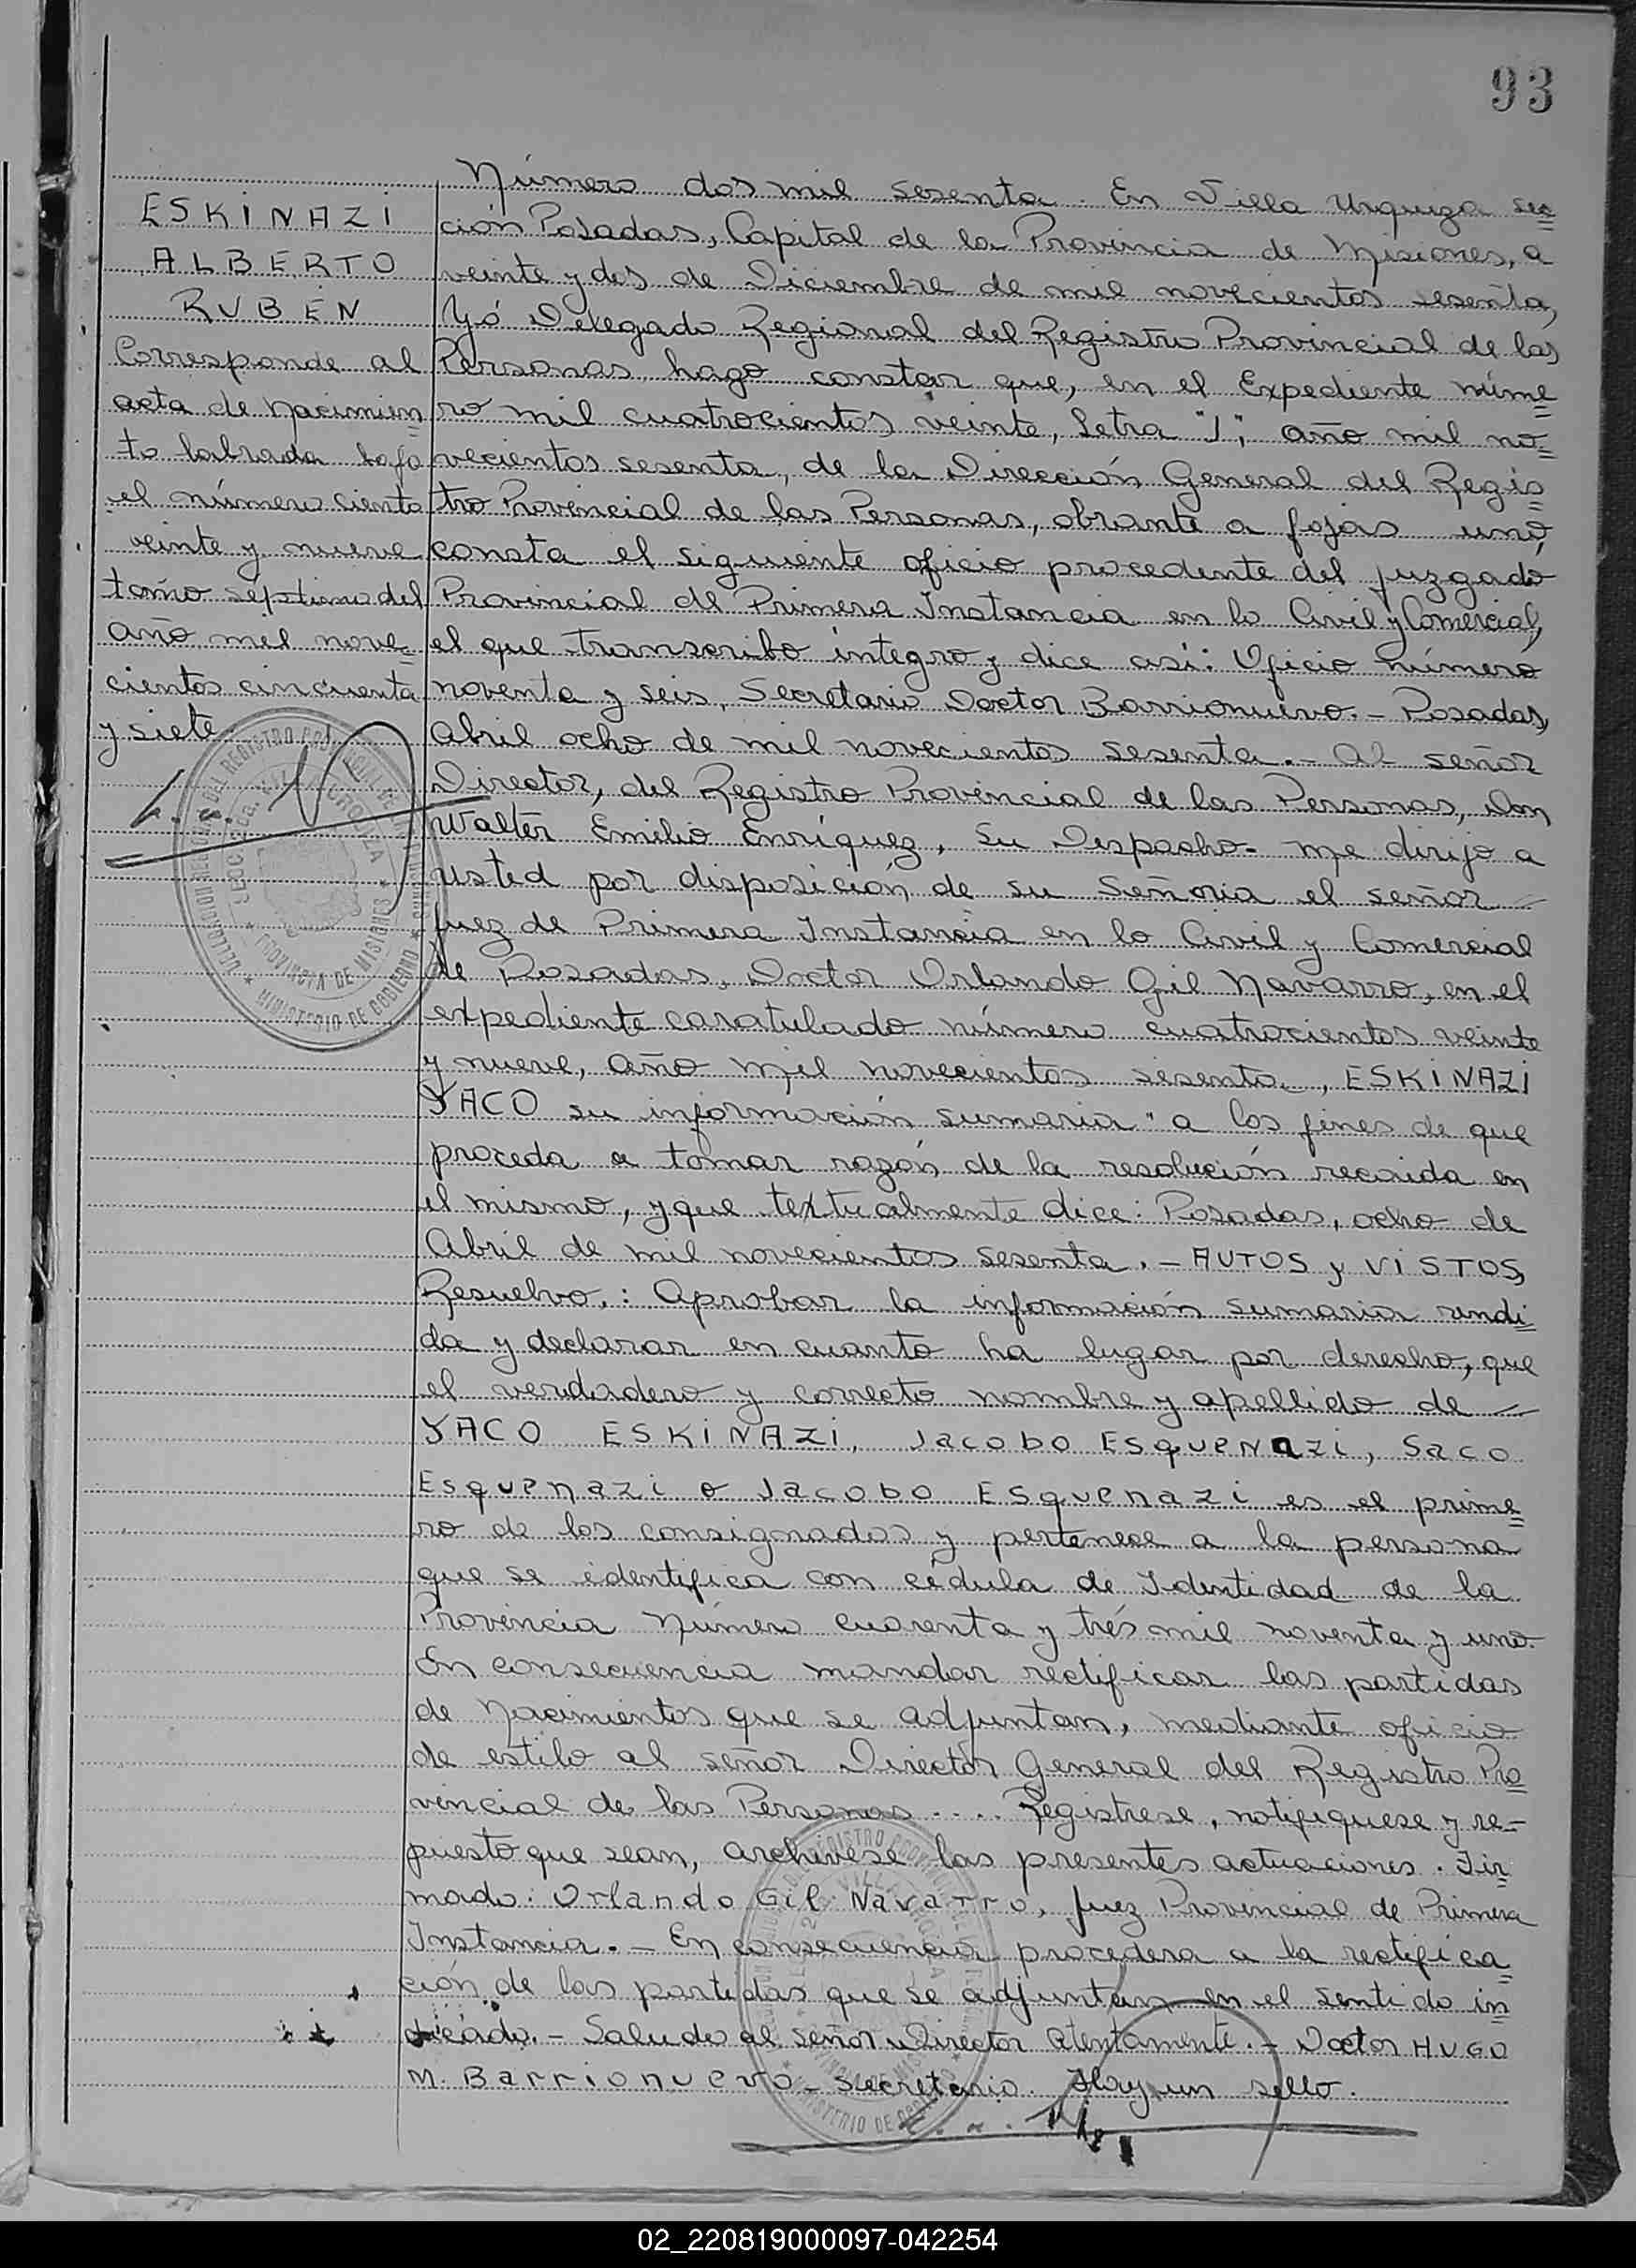 93
ESKINAZI
ALBERTO
RUBEN
Corresponde al
acta de nacimien=
to labrada bajo
el número ciento
veinte y nueve
tomo séptimo del
año mil nove=
cientos cincuenta
y siete
Número dos mil sesenta. En Villa Urquiza sec=
ción Posadas, Capital de la Provincia de Misiones, a
veinte y dos de Diciembre de mil novecientos sesenta,
Yó Delegado Regional del Registro Provincial de las
Personas, hago constar que, en el Expediente núme=
ro mil cuatrocientos veinte, Letra "J", año mil no=
vecientos sesenta, de la Dirección General del Regis=
tro Provincial de las Personas, obrante a fojas uno,
consta el siguiente oficio procedente del Juzgado
Provincial de Primera Instancia en lo Civil y Comercial,
el que transcribo íntegro y dice así: Oficio número
noventa y seis, Secretario Doctor Barrionuevo.- Posadas,
Abril ocho de mil novecientos sesenta.- Al señor
Director, del Registro Provincial de las Personas, Don
Walter Emilio Enríquez, Su Despacho- Me dirijo a
usted por disposición de su Señoria el señor -
Juez de Primera Instancia en lo Civil y Comercial
de Posadas, Doctor Orlando Gil Navarro, en el
expediente caratulado número cuatrocientos veinte
y nueve, año mil novecientos sesenta, ESKINAZI
YACO su información sumaria" a los fines de que
proceda a tomar razón de la resolución recaida en
el mismo, y que textualmente dice: Posadas, ocho de
Abril de mil novecientos sesenta.- AUTOS y VISTOS,
Resuelvo,: Aprobar la información sumaria rendi=
da y declarar en cuanto ha lugar por derecho, que
el verdadero y correcto nombre y apellido de -
YACO ESKINAZI, Jacobo Esquenazi, Saco
Esquenazi o Jacobo Esquenazi es el prime=
ro de los consignados y pertenece a la persona
que se identifica con cédula de Identidad de la
Provincia Número cuarenta y trés mil noventa y uno.
En consecuencia mandar rectificar las partidas
de Nacimientos que se adjuntan, mediante oficio
de estilo al señor Director General del Registro Pro=
vincial de las Personas .... Registrese, notifiquese y re-
puesto que sean, archivese las presentes actuaciones. Fir=
mado: Orlando Gil Navarro, Juez Provincial de Primera
Instancia.- En consecuencia procedera a la rectifica=
ción de las partidas que se adjuntan en el sentido in=
dicado.- Saludo al Señor Director Atentamente.- Doctor HUGO
M. Barrionuevo- Secretario. Hay un sello.
02_220819000097-042254